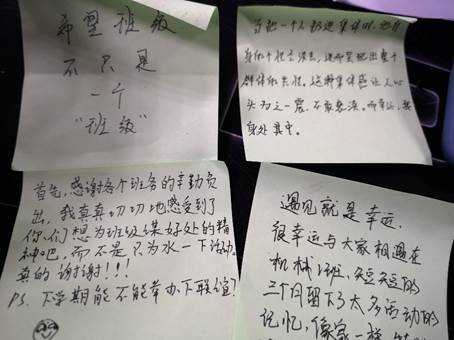 希望班级
不只是
一个
“班级”
当把一个人扔进集体时，他自
身的个性会消失，进而呈现出整个
群体的共性。这种集体感让人心
头为之一震，不敢亵渎。而幸运，我
身处其中。
首先，感谢各个班委的辛勤负
出，我真真切切地感受到了
你们想为班级谋好处的精
神吧，而不是只为水一下活动。
真的谢谢！！！
PS. 下学期能不能举办下联谊？
遇见就是幸运，
很幸运与大家相遇在
机械1班，短短的
三个月留下了太多活动的
记忆，像家一样